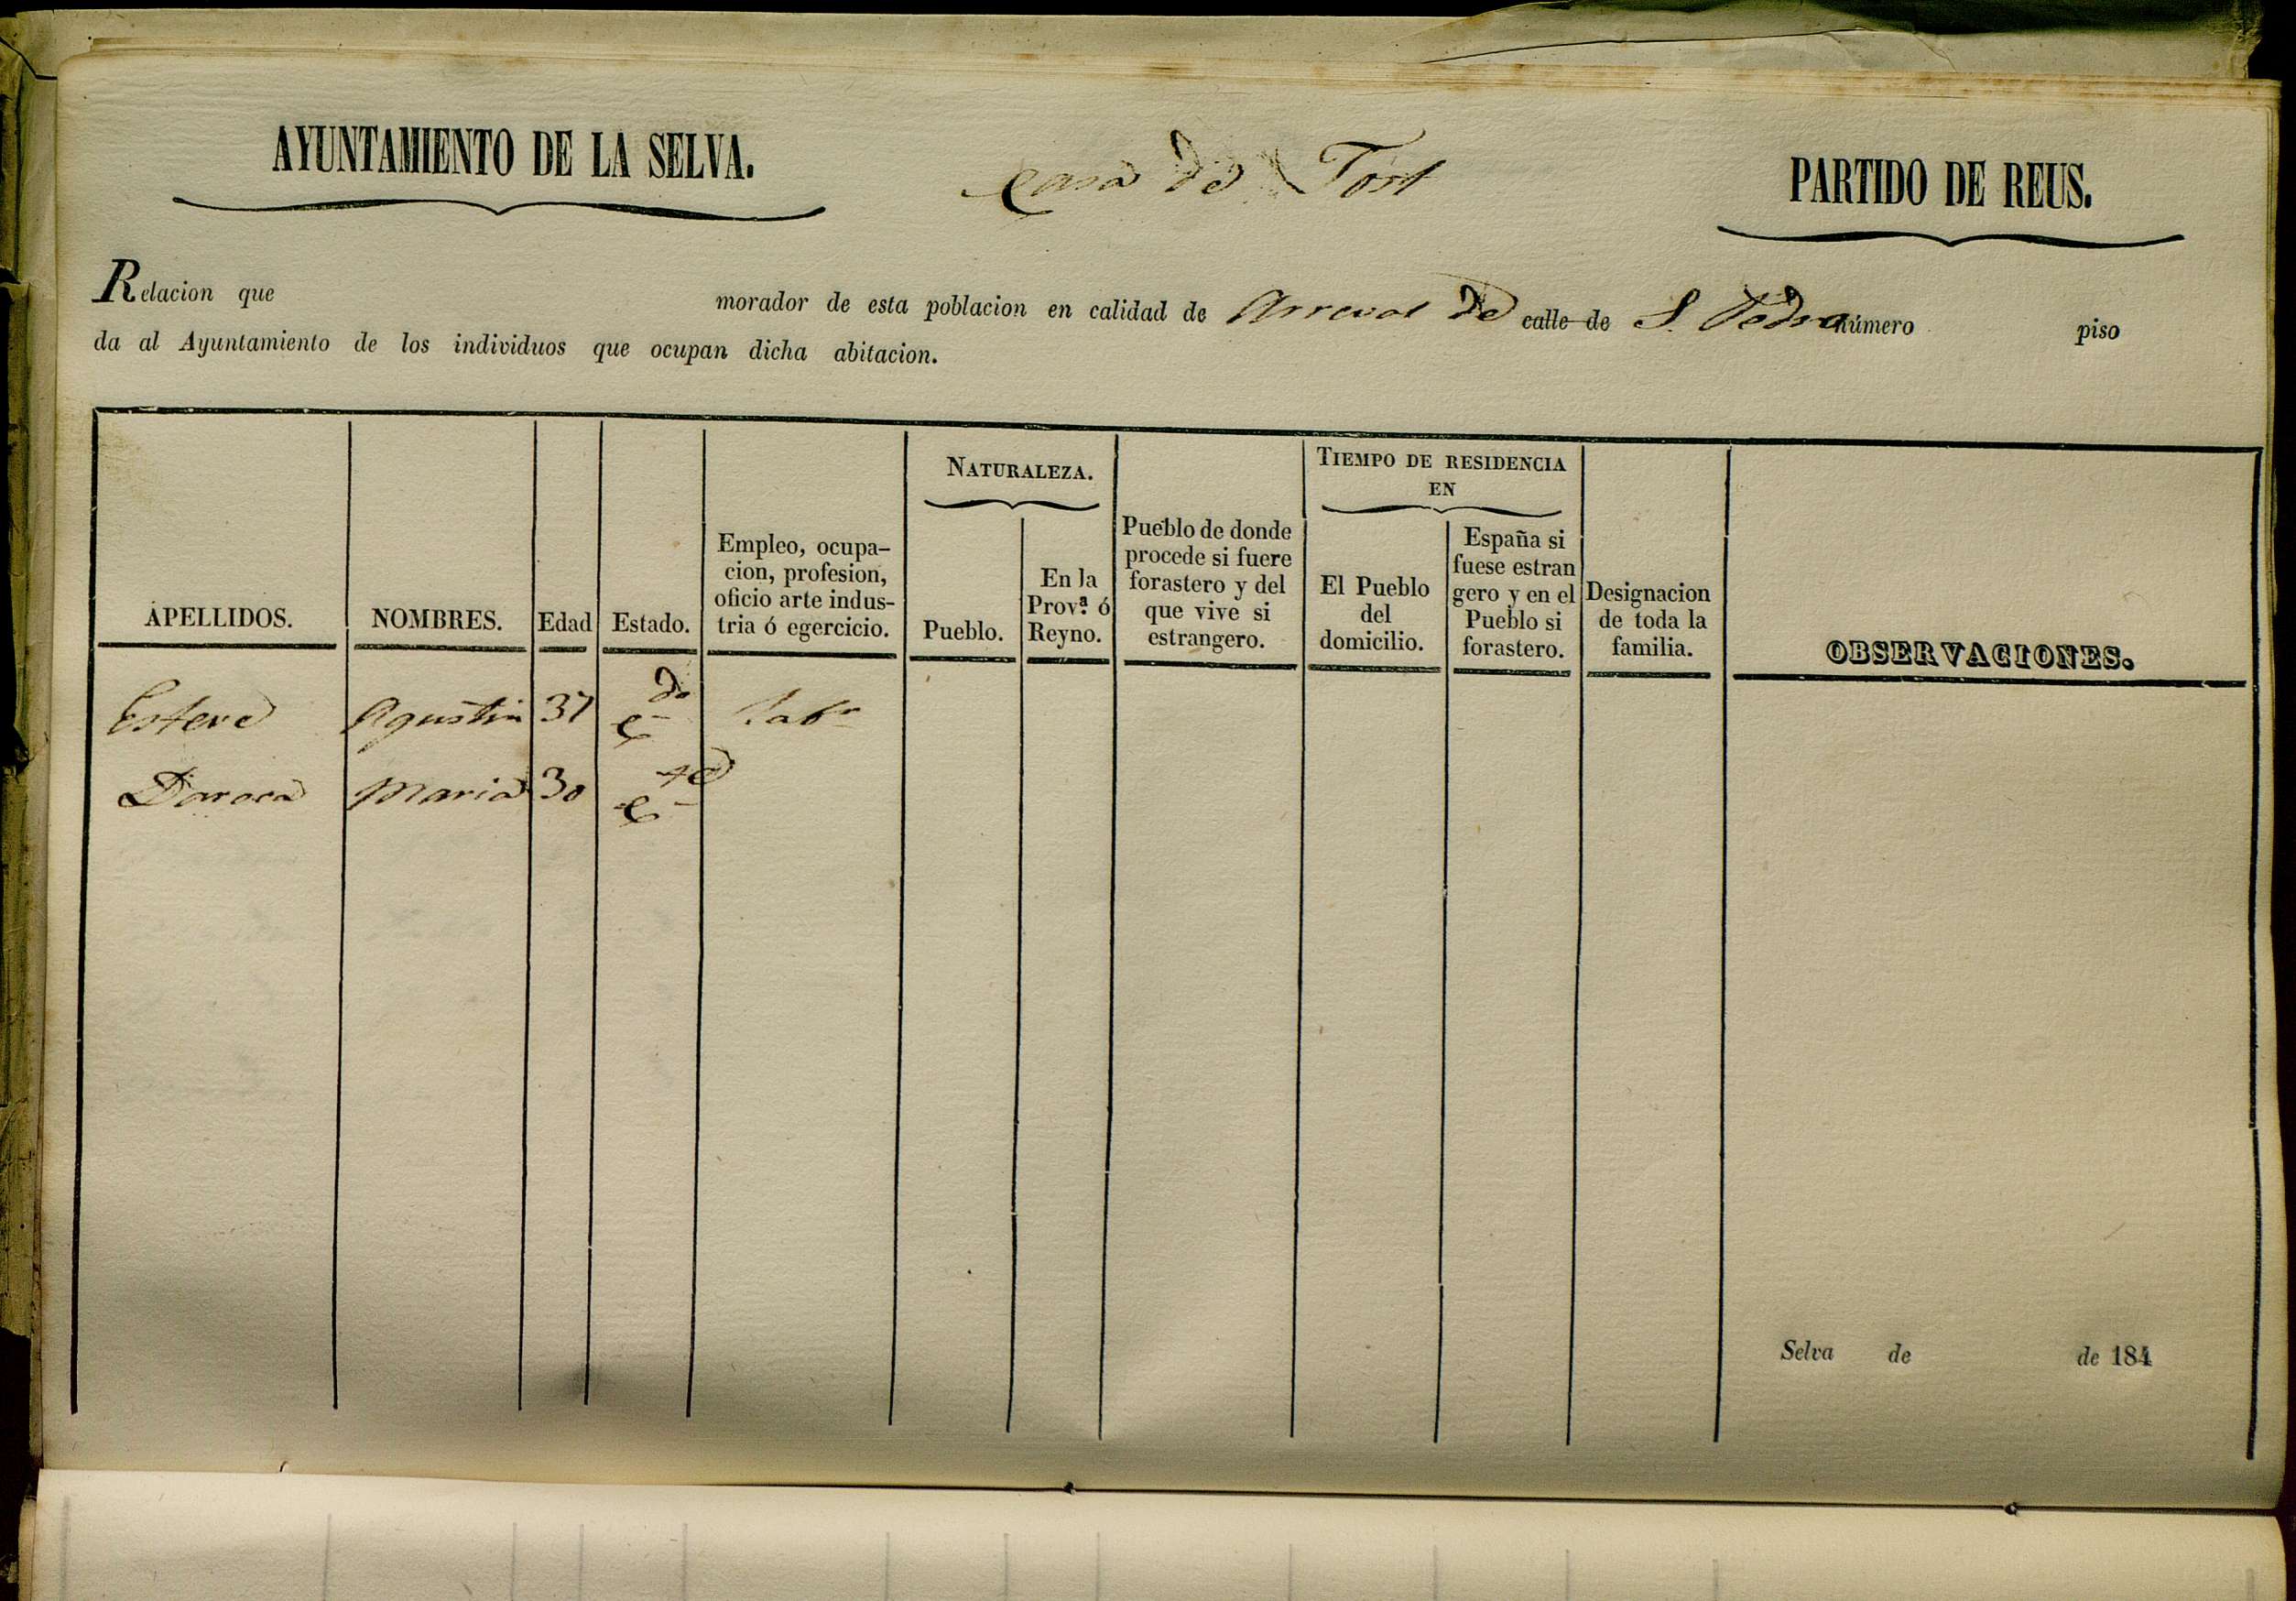 AYUNTAMIENTO DE LA SELVA.
Casa de Tost
PARTIDO DE REUS.
Relacion que morador de esta poblacion en calidad de Arreval de calle de S. Pedro número piso
da al Ayuntamiento de los individuos que ocupan dicha abitacion.
APELLIDOS.
NOMBRES.
Edad
Estado.
Empleo, ocupa-
cion, profesion,
oficio arte indus-
tria ó egercicio.
NATURALEZA.
Pueblo.
En la
Prov.ª ó
Reyno.
Pueblo de donde
procede si fuere
forastero y del
que vive si
estrangero.
TIEMPO DE RESIDENCIA
EN
El Pueblo
del
domicilio.
España si
fuese estran
gero y en el
Pueblo si
forastero.
Designacion
de toda la
familia.
OBSERVACIONES.
Esteve Agustin 37 C.do Lab.r
Daroca Maria 30 C.da
Selva de de 184